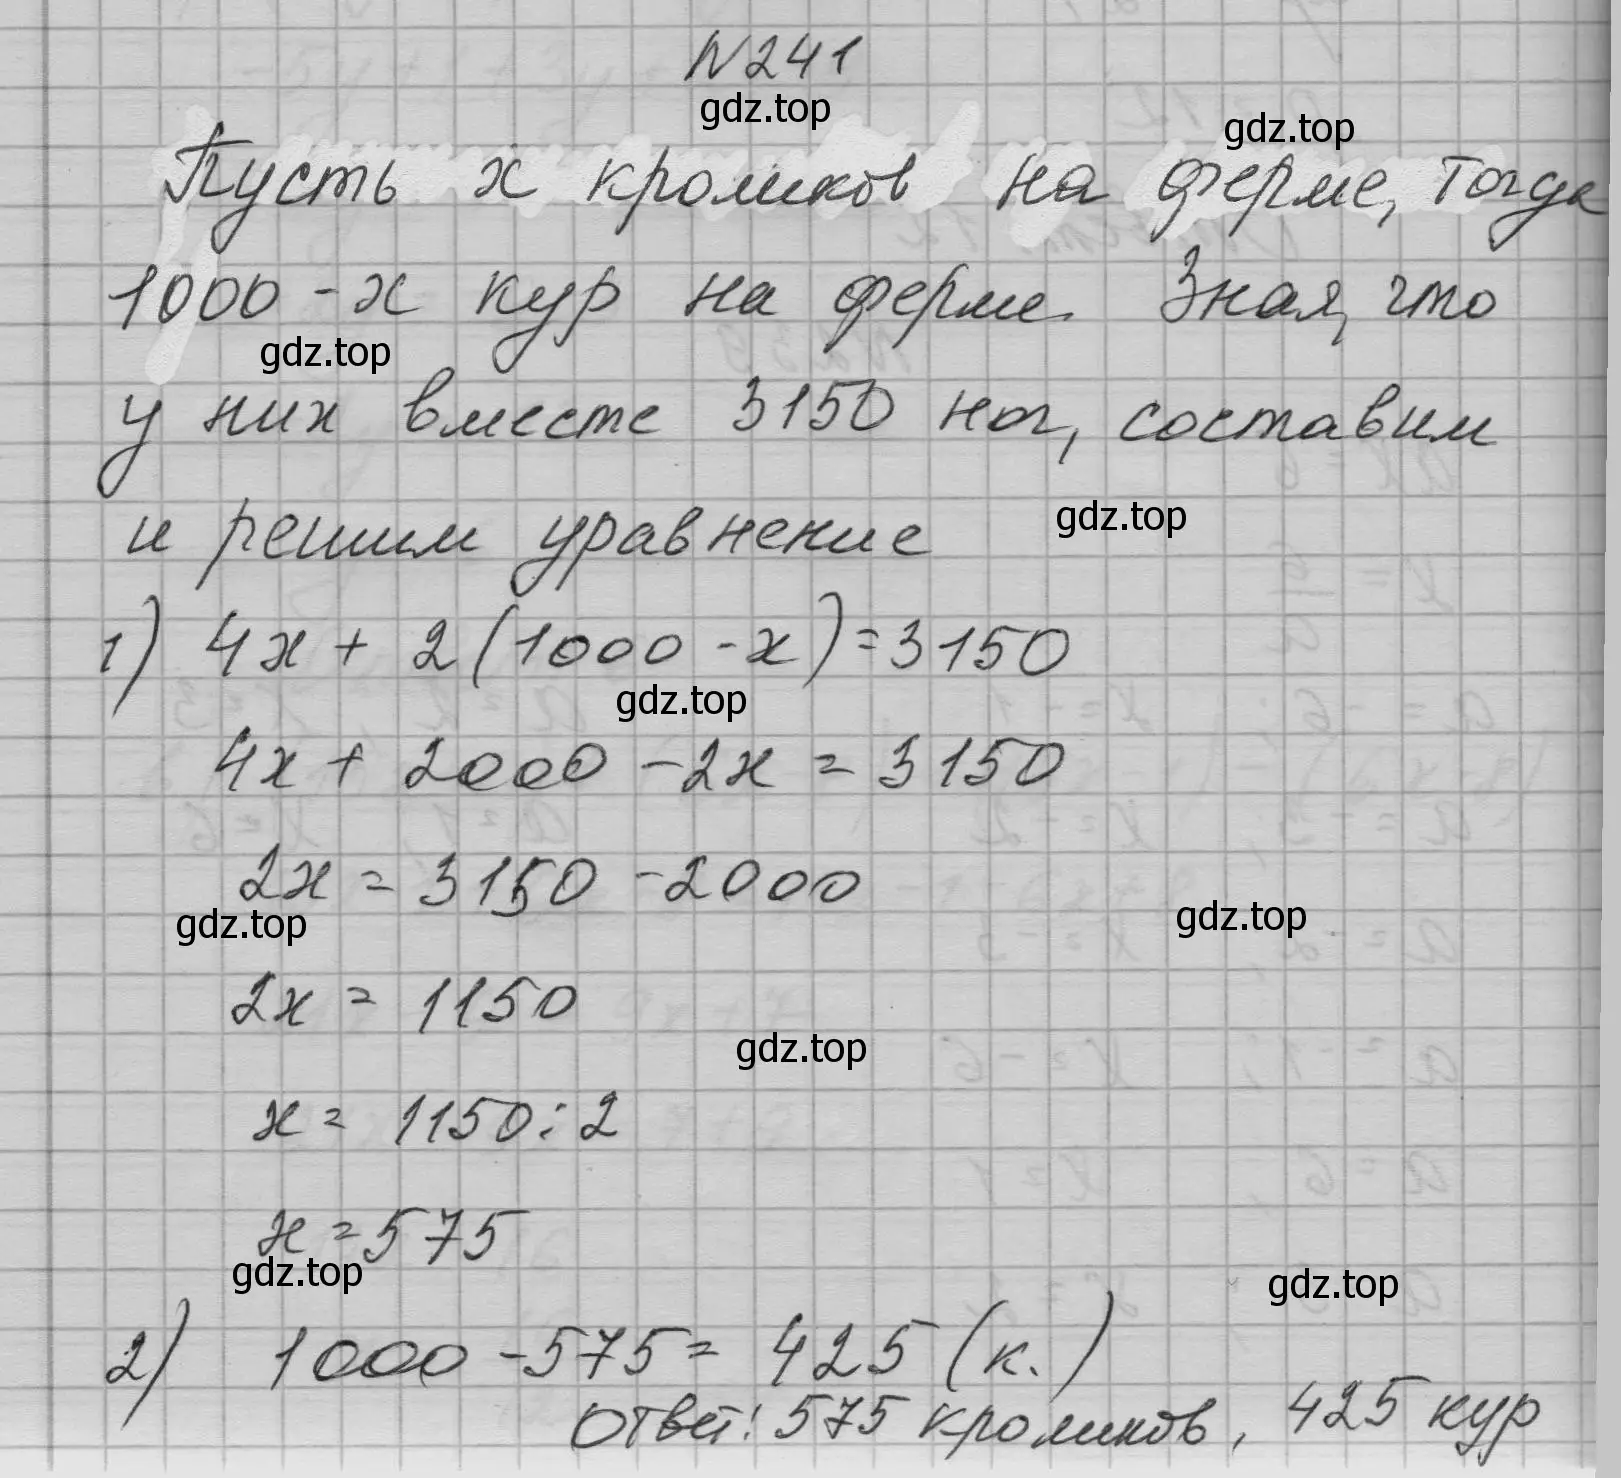 N241
gdz.top
gdz.top
Пусть x кроликов на ферме, тогда
1000-x кур на ферме. Зная, что
gdz.top
у них вместе 3150 ног, составим
gdz.top
и решим уравнение
1) 4x + 2(1000-x)=3150
gdz.top
4x + 2000 - 2x = 3150
2x = 3150 - 2000
gdz.top
gdz.top
2x = 1150
gdz.top
x = 1150:2
x = 575
gdz.top
gdz.top
2) 1000 - 575 = 425 (к.)
Ответ: 575 кроликов, 425 кур